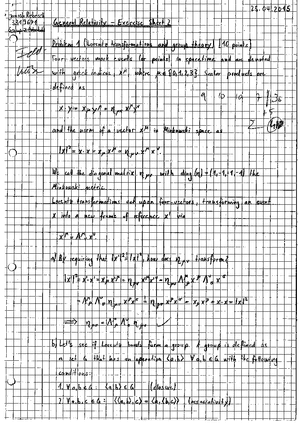 25.04.2015
General Relativity – Exercise Sheet 2
Problem 1 (Lorentz transformations and group theory) [10 points]
Four-vectors mark events (or points) in spacetime and are denoted
with greek indices xᵘ, where μ ∈ {0,1,2,3}. Scalar products are
defined as
x·y = xμyᵘ = ημν xᵘyᵛ
and the norm of a vector xᵘ in Minkowski space as
|x|² = x·x = xμxᵘ = ημν xᵘxᵛ.
We call the diagonal matrix ημν with diag(η) = (1,-1,-1,-1) the
Minkowski metric.
Lorentz transformations act upon four-vectors, transforming an event
x into a new frame of reference x' via
x'ᵘ = Λᵘν xᵛ
a) By requiring that |x'|² = |x|², how does ημν transform?
b) Let's see if Lorentz boosts form a group. A group is defined as
a set G that has an operation (a,b) ∀ a,b ∈ G with the following
conditions:
1. ∀ a,b ∈ G: (a,b) ∈ G (closure)
2. ∀ a,b,c ∈ G: ((a,b),c) = (a,(b,c)) (associativity)